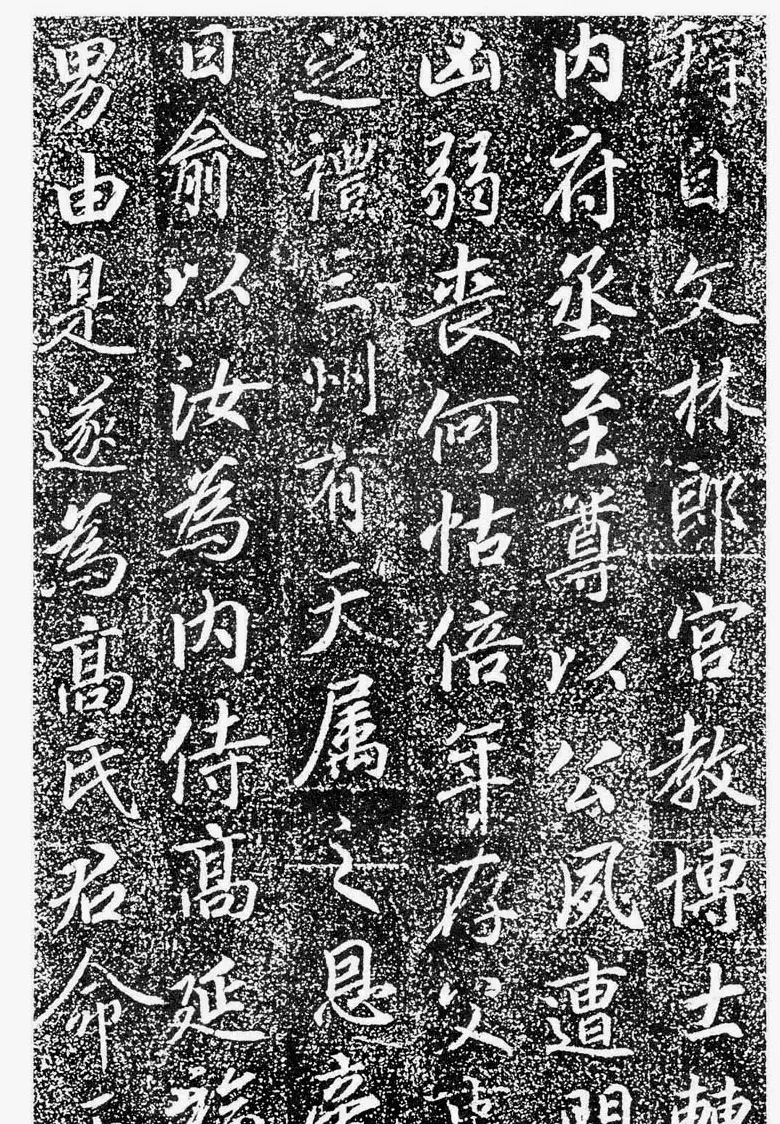 釋自文林郎宮教博士轉
内府丞至尊以公夙遭閔
凶弱喪何怙倍年存父事
之禮三州有天属之恩帝
曰俞以汝為内侍高延福
男由是遂為高氏君命